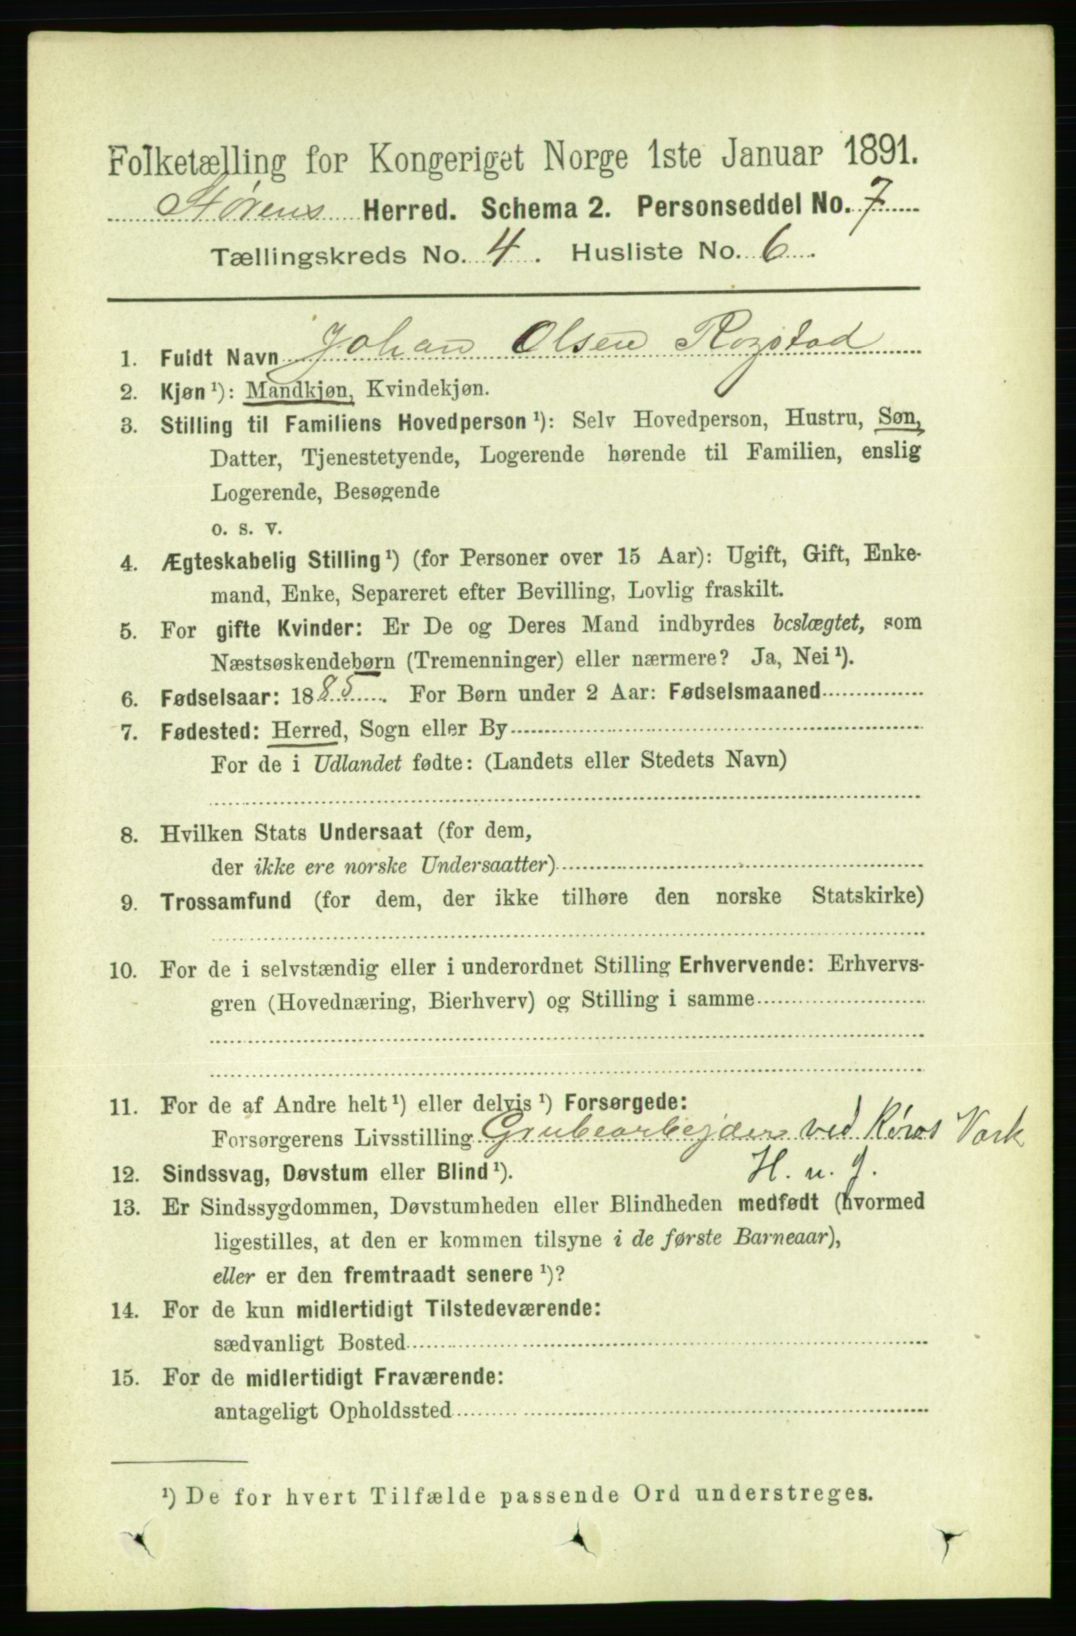 Folketælling for Kongeriget Norge 1ste Januar 1891.
Størens Herred. Schema 2. Personseddel No. 7
Tællingskreds No. 4. Husliste No. 6.
1. Fuldt Navn Johan Olsen Rogstad
2. Kjøn ¹): Mandkjøn, Kvindekjøn.
3. Stilling til Familiens Hovedperson ¹): Selv Hovedperson, Hustru, Søn,
Datter, Tjenestetyende, Logerende hørende til Familien, enslig
Logerende, Besøgende
o. s. v.
4. Ægteskabelig Stilling ¹) (for Personer over 15 Aar): Ugift, Gift, Enke-
mand, Enke, Separeret efter Bevilling, Lovlig fraskilt.
5. For gifte Kvinder: Er De og Deres Mand indbyrdes beslægtet, som
Næstsøskendebørn (Tremenninger) eller nærmere? Ja, Nei ¹).
6. Fødselsaar: 1885. For Børn under 2 Aar: Fødselsmaaned
7. Fødested: Herred, Sogn eller By
For de i Udlandet fødte: (Landets eller Stedets Navn)
8. Hvilken Stats Undersaat (for dem,
der ikke ere norske Undersaatter)
9. Trossamfund (for dem, der ikke tilhøre den norske Statskirke)
10. For de i selvstændig eller i underordnet Stilling Erhvervende: Erhvervs-
gren (Hovednæring, Bierhverv) og Stilling i samme
11. For de af Andre helt ¹) eller delvis ¹) Forsørgede:
Forsørgerens Livsstilling Grubearbejder ved Røros Værk
12. Sindssvag, Døvstum eller Blind ¹). H. u. J.
13. Er Sindssygdommen, Døvstumheden eller Blindheden medfødt (hvormed
ligestilles, at den er kommen tilsyne i de første Barneaar),
eller er den fremtraadt senere ¹)?
14. For de kun midlertidigt Tilstedeværende:
sædvanligt Bosted
15. For de midlertidigt Fraværende:
antageligt Opholdssted
¹) De for hvert Tilfælde passende Ord understreges.